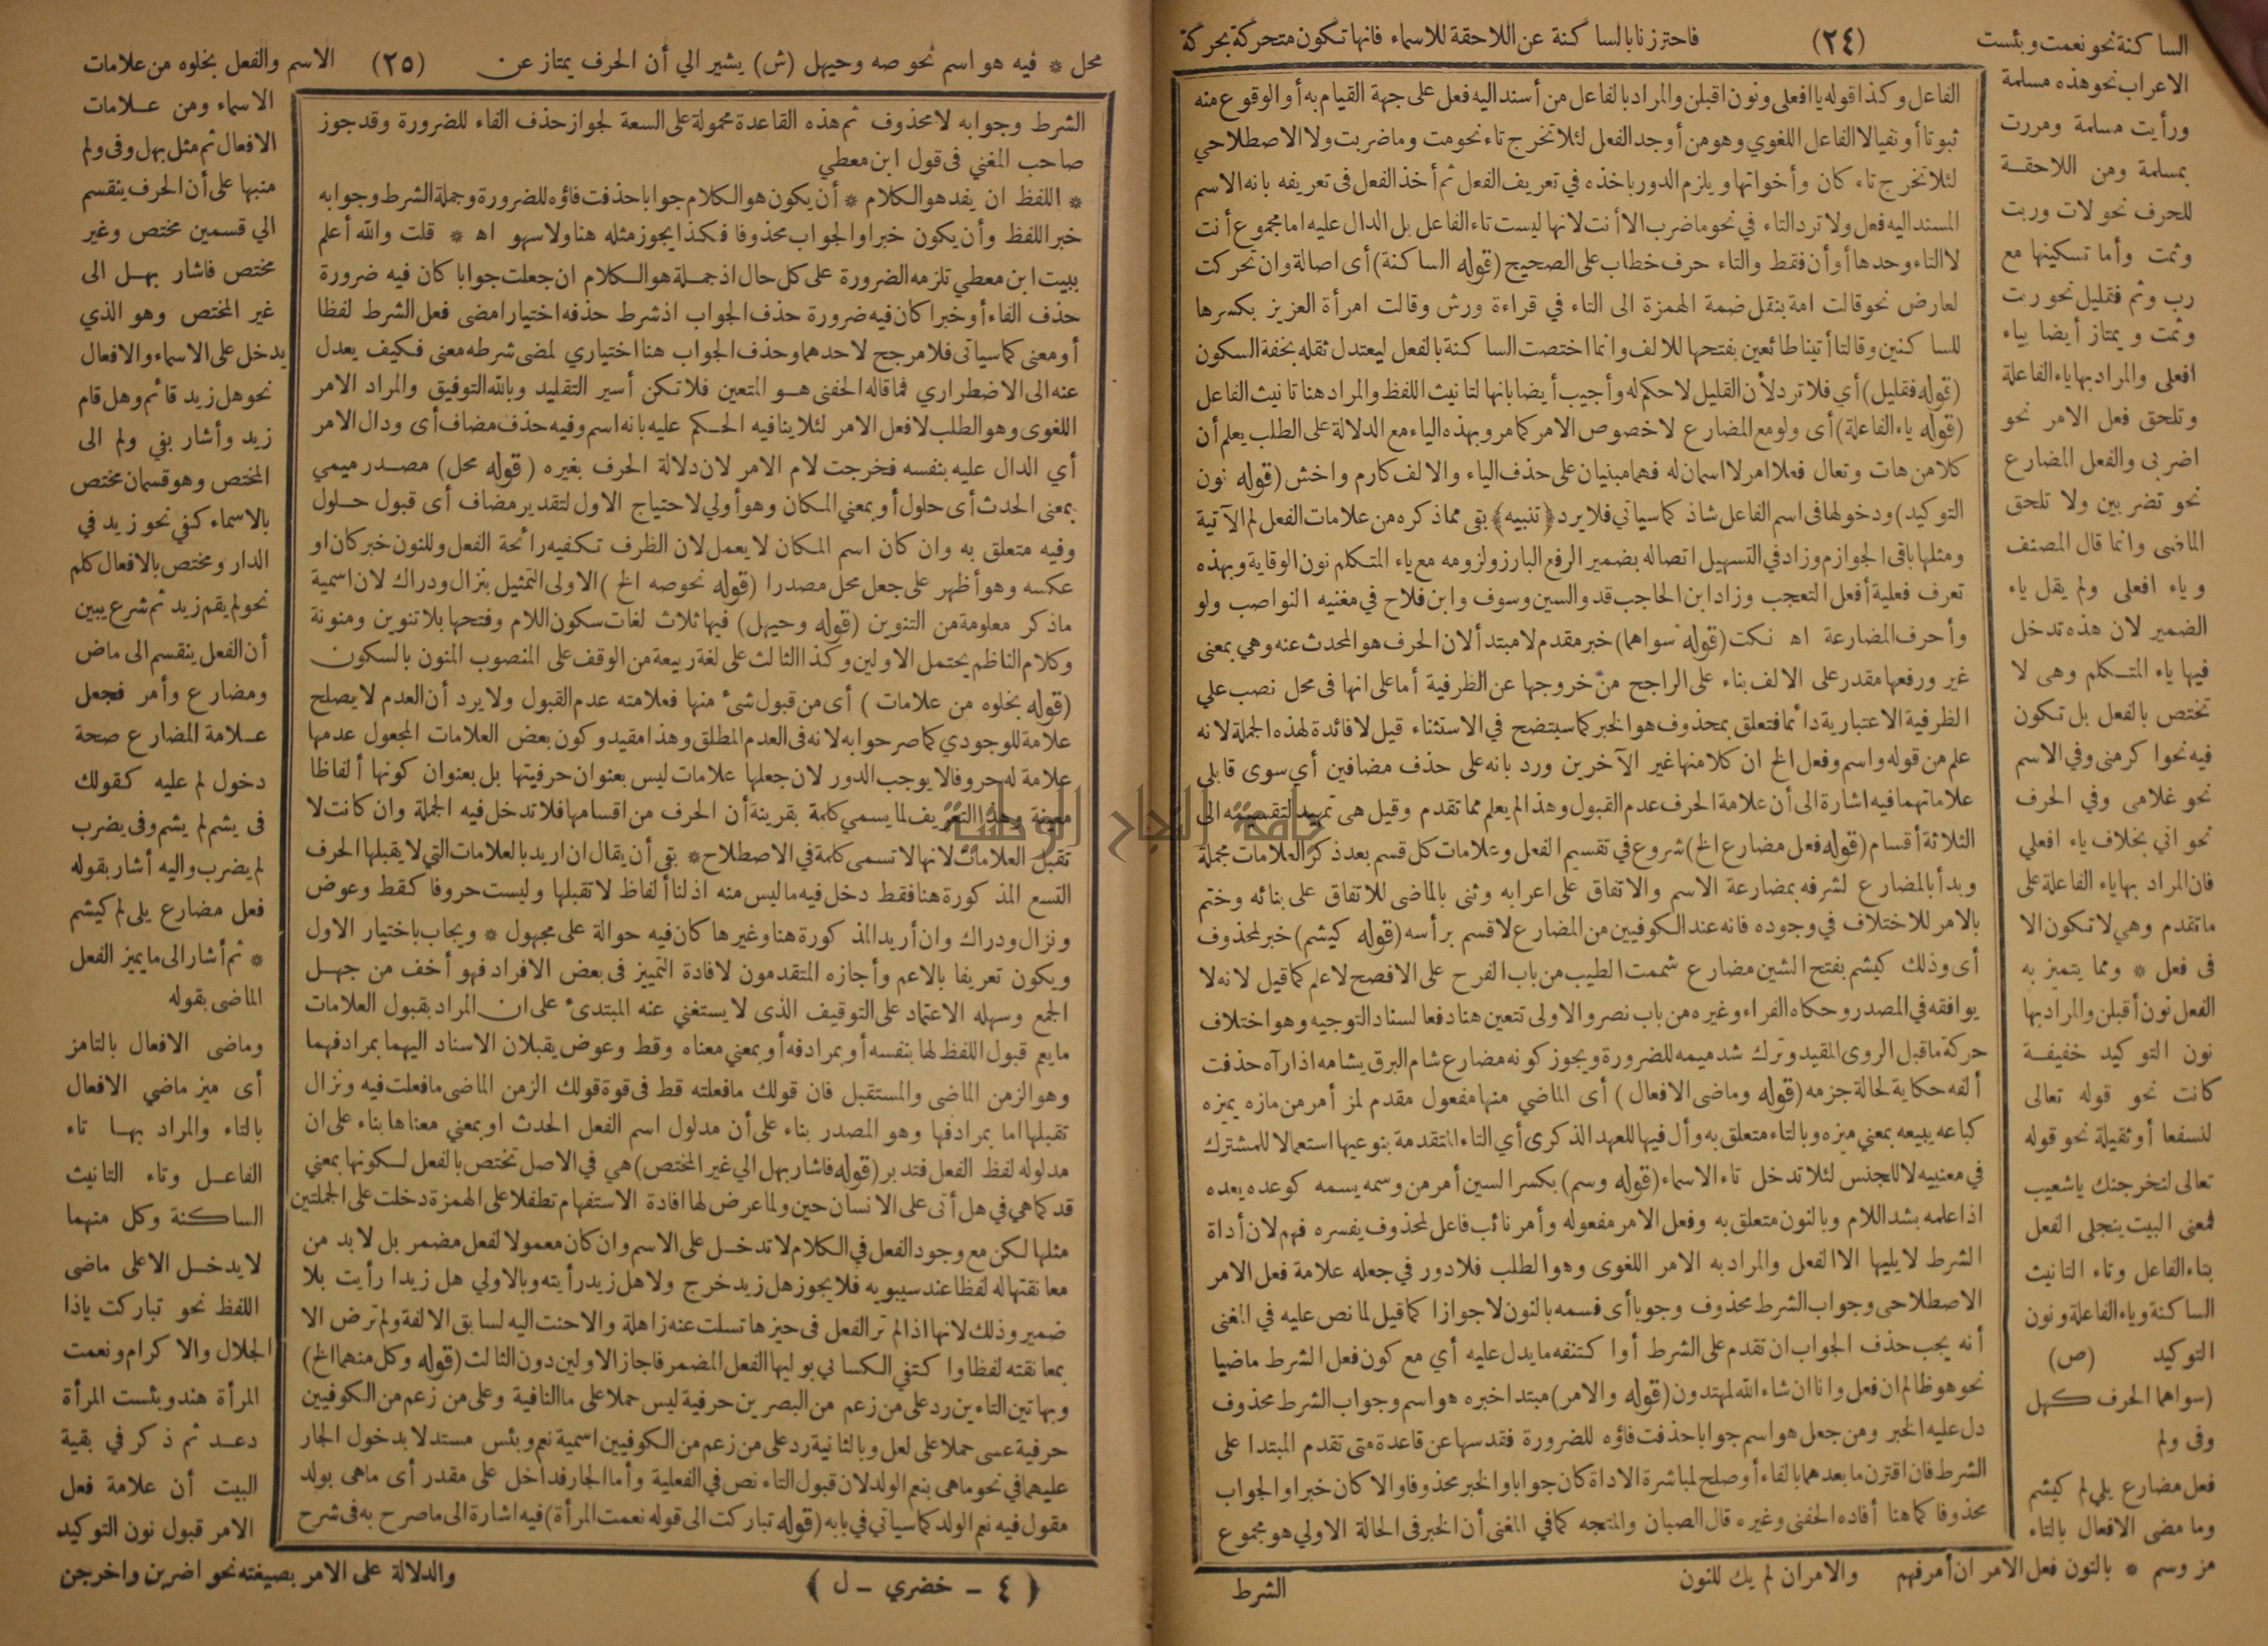 الساكنة نحو نعمت وبئست (٢٤) فاحترزنا بالساكنة عن اللاحقة للاسماء فانها تكون متحركة بحركة
الاعراب نحو هذه مسلمة
ورأيت مسلمة ومررت
بمسلمة ومن اللاحقة
للحرف نحو لات وربت
وثمت وأما تسكينها مع
رب وثم فقليل نحو ربت
وثمت ويمتاز أيضا بياء
افعلى والمراد بها ياء الفاعلة
وتلحق فعل الامر نحو
اضربى والفعل المضارع
نحو تضربين ولا تلحق
الماضى وانما قال المصنف
وياء افعلى ولم يقل ياء
الضمير لان هذه تدخل
فيها ياء المتكلم وهى لا
تختص بالفعل بل تكون
فيه نحو اكرمنى وفي الاسم
نحو غلامى وفي الحرف
نحو انى بخلاف ياء افعلي
فان المراد بها ياء الفاعلة على
ما تقدم وهي لا تكون الا
فى فعل * ومما يتميز به
الفعل نون أقبلن والمراد بها
نون التوكيد خفيفة
كانت نحو قوله تعالى
لنسفعا أو ثقيلة نحو قوله
تعالى لنخرجنك ياشعيب
فمعنى البيت ينجلى الفعل
بتاء الفاعل وتاء التانيث
الساكنة وياء الفاعلة ونون
التوكيد (ص)
(سواهما الحرف كهل
وفى ولم
فعل مضارع يلي لم كيشم
وما مضى الافعال بالتاء
مز وسم * بالنون فعل الامر ان أمر فهم والامر ان لم يك للنون
الفاعل وكذا قوله يا افعلى ونون اقبلن والمراد بالفاعل من أسند اليه فعل على جهة القيام به أو الوقوع منه
ثبوتا أو نفيا لا الفاعل اللغوي وهو من أوجد الفعل لئلا تخرج تاء نحو مت وما ضربت ولا الاصطلاحي
لئلا تخرج تاء كان وأخواتها ويلزم الدور باخذه في تعريف الفعل ثم أخذ الفعل فى تعريفه بانه الاسم
المسند اليه فعل ولا ترد التاء في نحو ما ضرب الا أنت لانها ليست تاء الفاعل بل الدال عليه اما مجموع أنت
لا التاء وحدها أو أن فقط والتاء حرف خطاب على الصحيح (قوله الساكنة) أى اصالة وان تحركت
لعارض نحو قالت امة بنقل ضمة الهمزة الى التاء في قراءة ورش وقالت امرأة العزيز بكسرها
للساكنين وقالتا أتينا طائعين بفتحها للالف وانما اختصت الساكنة بالفعل ليعتدل ثقله بخفة السكون
(قوله فقليل) أي فلا ترد لأن القليل لا حكم له وأجيب أيضا بانها لتانيث اللفظ والمراد هنا تانيث الفاعل
(قوله ياء الفاعلة) أى ولو مع المضارع لا خصوص الامر كما مر وبهذه الياء مع الدلالة على الطلب يعلم أن
كلا من هات وتعال فعلا امر لا اسمان له فهما مبنيان على حذف الياء والالف كارم واخش (قوله نون
التوكيد) ودخولها فى اسم الفاعل شاذ كما سياتي فلا يرد ﴿تنبيه﴾ بقى مما ذكره من علامات الفعل لم الآتية
ومثلها باقى الجوازم وزاد في التسهيل اتصاله بضمير الرفع البارز ولزومه مع ياء المتكلم نون الوقاية وبهذه
تعرف فعلية أفعل التعجب وزاد ابن الحاجب قد والسين وسوف وابن فلاح في مغنيه النواصب ولو
وأحرف المضارعة اه نكت (قوله سواهما) خبر مقدم لا مبتدأ لان الحرف هو المحدث عنه وهي بمعنى
غير ورفعها مقدر على الالف بناء على الراجح من خروجها عن الظرفية أما على انها فى محل نصب علي
الظرفية الاعتبارية دائما فتعلق بمحذوف هو الخبر كما سيتضح في الاستثناء قيل لا فائدة لهذه الجملة لانه
علم من قوله واسم وفعل الخ ان كلا منها غير الآخرين ورد بانه على حذف مضافين أي سوى قابلي
علاماتهما فيه اشارة الى أن علامة الحرف عدم القبول وهذا لم يعلم مما تقدم وقيل هى تمهيد لتقسيمه الى
الثلاثة أقسام (قوله فعل مضارع الخ) شروع في تقسيم الفعل وعلامات كل قسم بعد ذكر العلامات مجملة
وبدأ بالمضارع لشرفه بمضارعة الاسم والاتفاق على اعرابه وثنى بالماضى للاتفاق على بنائه وختم
بالامر للاختلاف في وجوده فانه عند الكوفيين من المضارع لا قسم برأسه (قوله كيشم) خبر لمحذوف
أى وذلك كيشم بفتح الشين مضارع شممت الطيب من باب الفرح على الافصح لا علم كما قيل لانه لا
يوافقه في المصدر وحكاه الفراء وغيره من باب نصر والاولى تتعين هنا دفعا لسناد التوجيه وهو اختلاف
حركة ما قبل الروى المقيد وترك شد ميمه للضرورة ويجوز كونه مضارع شام البرق يشامه اذا رآه حذفت
ألفه حكاية لحالة جزمه (قوله وماضى الافعال) أى الماضي منها مفعول مقدم لمز أمر من مازه يميزه
كباعه يبيعه بمعني ميزه وبالتاء متعلق به وأل فيها للعهد الذكرى أي التاء المتقدمة بنوعيها استعمالا للمشترك
في معنييه لا للجنس لئلا تدخل تاء الاسماء (قوله وسم) بكسر السين أمر من وسمه يسمه كوعده يعده
اذا علمه بشد اللام وبالنون متعلق به وفعل الامر مفعوله وأمر نائب فاعل لمحذوف يفسره فهم لان أداة
الشرط لا يليها الا الفعل والمراد به الامر اللغوى وهو الطلب فلا دور في جعله علامة فعل الامر
الاصطلاحى وجواب الشرط محذوف وجوبا أى فسمه بالنون لا جوازا كما قيل لما نص عليه في المغنى
أنه يجب حذف الجواب ان تقدم على الشرط أو اكتنفه ما يدل عليه أي مع كون فعل الشرط ماضيا
نحو هو ظالم ان فعل وانا ان شاء الله لمهتدون (قوله والامر) مبتدا خبره هو اسم وجواب الشرط محذوف
دل عليه الخبر ومن جعل هو اسم جوابا حذفت فاؤه للضرورة فقد سها عن قاعدة متى تقدم المبتدا على
الشرط فان اقترن ما بعدهما بالفاء أو صلح لمباشرة الاداة كان جوابا والخبر محذوفا والا كان خبرا والجواب
محذوفا كما هنا أفاده الحفنى وغيره قال الصبان والمتجه كما في المغنى أن الخبر فى الحالة الاولي هو مجموع
الشرط
محل * فيه هو اسم نحو صه وحيهل (ش) يشير الي أن الحرف يمتاز عن (٢٥) الاسم والفعل بخلوه من علامات
الشرط وجوابه لا محذوف ثم هذه القاعدة محمولة على السعة لجواز حذف الفاء للضرورة وقد جوز
صاحب المغني فى قول ابن معطي
* اللفظ ان يفد هو الكلام * أن يكون هو الكلام جوابا حذفت فاؤه للضرورة وجملة الشرط وجوابه
خبر اللفظ وأن يكون خبرا والجواب محذوفا فكذا يجوز مثله هنا ولا سهو اه * قلت والله أعلم
ببيت ابن معطي تلزمه الضرورة على كل حال اذ جملة هو الكلام ان جعلت جوابا كان فيه ضرورة
حذف الفاء أو خبرا كان فيه ضرورة حذف الجواب اذ شرط حذفه اختيارا مضى فعل الشرط لفظا
أو معنى كما سياتى فلا مرجح لاحدهما وحذف الجواب هنا اختياري لمضى شرطه معنى فكيف يعدل
عنه الى الاضطراري فما قاله الحفنى هو المتعين فلا تكن أسير التقليد وبالله التوفيق والمراد الامر
اللغوى وهو الطلب لا فعل الامر لئلا ينافيه الحكم عليه بانه اسم وفيه حذف مضاف أى ودال الامر
أي الدال عليه بنفسه فخرجت لام الامر لان دلالة الحرف بغيره (قوله محل) مصدر ميمي
بمعنى الحدث أى حلول أو بمعني المكان وهو أولي لاحتياج الاول لتقدير مضاف أى قبول حلول
وفيه متعلق به وان كان اسم المكان لا يعمل لان الظرف تكفيه رائحة الفعل وللنون خبر كان او
عكسه وهو أظهر على جعل محل مصدرا (قوله نحو صه الخ) الاولى التمثيل بنزال ودراك لان اسمية
ما ذكر معلومة من التنوين (قوله وحيهل) فيها ثلاث لغات سكون اللام وفتحها بلا تنوين ومنونة
وكلام الناظم يحتمل الاولين وكذا الثالث على لغة ربيعة من الوقف على المنصوب المنون بالسكون
(قوله بخلوه من علامات) أى من قبول شىء منها فعلامته عدم القبول ولا يرد أن العدم لا يصلح
علامة للوجودي كما صرحوا به لانه فى العدم المطلق وهذا مقيد وكون بعض العلامات المجعول عدمها
علامة له حروفا لا يوجب الدور لان جعلها علامات ليس بعنوان حرفيتها بل بعنوان كونها ألفاظا
معينة وهذا التعريف لما يسمي كلمة بقرينة أن الحرف من اقسامها فلا تدخل فيه الجملة وان كانت لا
تقبل العلامات لانها لا تسمى كلمة في الاصطلاح * بقى أن يقال ان اريد بالعلامات التي لا يقبلها الحرف
التسع المذكورة هنا فقط دخل فيه ما ليس منه اذ لنا ألفاظ لا تقبلها وليست حروفا كقط وعوض
ونزال ودراك وان أريد المذكورة هنا وغيرها كان فيه حوالة على مجهول * ويجاب باختيار الاول
ويكون تعريفا بالاعم وأجازه المتقدمون لافادة التمييز فى بعض الافراد فهو أخف من جهل
الجمع وسهله الاعتماد على التوقيف الذى لا يستغني عنه المبتدىء على ان المراد بقبول العلامات
ما يعم قبول اللفظ لها بنفسه أو بمرادفه أو بمعني معناه وقط وعوض يقبلان الاسناد اليهما بمرادفهما
وهو الزمن الماضى والمستقبل فان قولك ما فعلته قط فى قوة قولك الزمن الماضى ما فعلت فيه ونزال
تقبلها اما بمرادفها وهو المصدر بناء على أن مدلول اسم الفعل الحدث او بمعني معناها بناء على ان
مدلوله لفظ الفعل فتدبر (قوله فاشار بهل الي غير المختص) هي في الاصل تختص بالفعل لكونها بمعني
قد كما هي في هل أتى على الانسان حين ولما عرض لها افادة الاستفهام تطفلا على الهمزة دخلت على الجملتين
مثلها لكن مع وجود الفعل في الكلام لا تدخل على الاسم وان كان معمولا لفعل مضمر بل لا بد من
معانقتها له لفظا عند سيبويه فلا يجوز هل زيد خرج ولا هل زيد رأيته وبالاولي هل زيدا رأيت بلا
ضمير وذلك لانها اذا لم تر الفعل فى حيزها تسلت عنه زاهلة والا حنت اليه لسابق الالفة ولم ترض الا
بمعانقته لفظا واكتفي الكسائي بوليها الفعل المضمر فاجاز الاولين دون الثالث (قوله وكل منهما الخ)
وبهاتين التاءين رد على من زعم من البصريين حرفية ليس حملا على ما النافية وعلى من زعم من الكوفيين
حرفية عسى حملا على لعل وبالثانية رد على من زعم من الكوفيين اسمية نعم وبئس مستدلا بدخول الجار
عليهما في نحو ما هى بنعم الولد لان قبول التاء نص في الفعلية وأما الجار فداخل على مقدر أى ما هى بولد
مقول فيه نعم الولد كما سياتي في بابه (قوله تباركت الى قوله نعمت المرأة) فيه اشارة الى ما صرح به فى شرح
الاسماء ومن علامات
الافعال ثم مثل بهل وفى ولم
منبها على أن الحرف ينقسم
الي قسمين مختص وغير
مختص فاشار بهل الى
غير المختص وهو الذي
يدخل على الاسماء والافعال
نحو هل زيد قائم وهل قام
زيد وأشار بفي ولم الى
المختص وهو قسمان مختص
بالاسماء كفي نحو زيد في
الدار ومختص بالافعال كلم
نحو لم يقم زيد ثم شرع يبين
أن الفعل ينقسم الى ماض
ومضارع وأمر فجعل
علامة المضارع صحة
دخول لم عليه كقولك
فى يشم لم يشم وفى يضرب
لم يضرب واليه أشار بقوله
فعل مضارع يلى لم كيشم
* ثم أشار الى ما يميز الفعل
الماضى بقوله
وماضى الافعال بالتامز
أى ميز ماضي الافعال
بالتاء والمراد بها تاء
الفاعل وتاء التانيث
الساكنة وكل منهما
لا يدخل الا على ماضى
اللفظ نحو تباركت ياذا
الجلال والاكرام ونعمت
المرأة هند وبئست المرأة
دعد ثم ذكر في بقية
البيت أن علامة فعل
الامر قبول نون التوكيد
والدلالة على الامر بصيغته نحو اضربن واخرجن
﴿ ٤ - خضري - ل ﴾
جامعة النجاح الوطنية